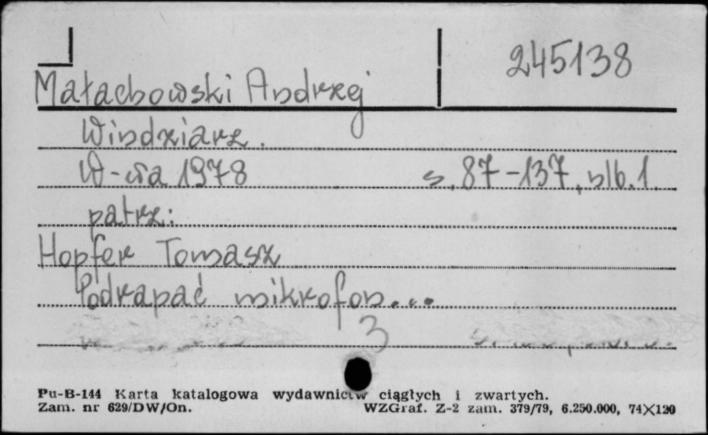 245138
Małachowski Andrzej
Windziarz.
W-wa 1978 s. 87-137, nlb. 1.
patrz:
Hopfer Tomasz
Podrapać mikrofon...
3
Pu-B-144 Karta katalogowa wydawnictw ciągłych i zwartych.
Zam. nr 629/DW/On. WZGraf. Z-2 zam. 379/79, 6.250.000, 74X120